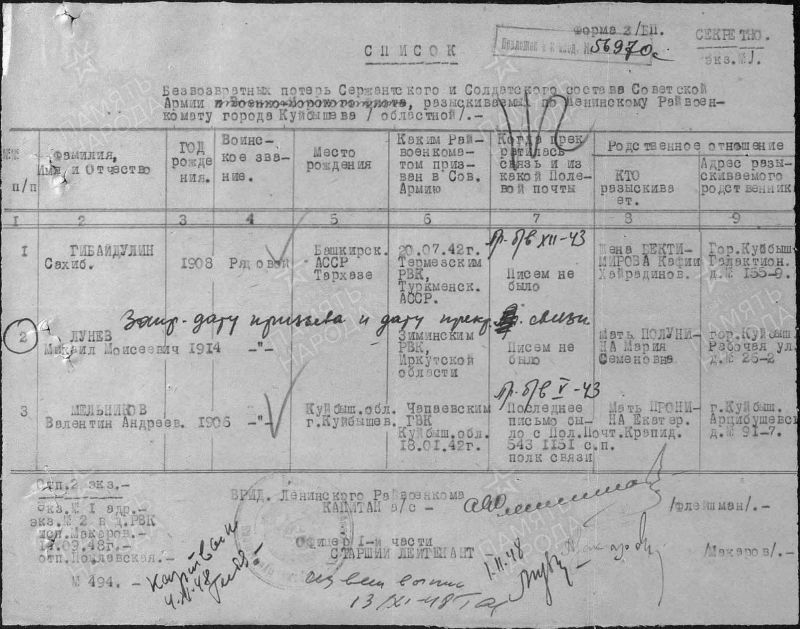 Форма 2/БП.
СЕКРЕТНО.
56970с
экз.№1.
СПИСОК
Безвозвратных потерь Сержантского и Солдатского состава Советской
Армии и Военно-Морского флота, разыскиваемых по Ленинскому Райвоен-
комату города Куйбышева /областной/.-
№№ п/п
Фамилия, Имя и Отчество
ГОД рожде ния.
Воинс- кое зва- ние.
Место рождения
Каким Рай- военкома- том приз- ван в Сов. Армию
Когда прек- ратилась связь и из какой Поле- вой почты
Родственное отношение
КТО разыскива ет.
Адрес разы- скиваемого родственник
1 2 3 4 5 6 7 8 9
пр. б/в XII-43
1 ГИБАЙДУЛИН Сахиб. 1908 Рядовой Башкирск. АССР Тархазе 20.07.42г. Термезским РВК, Туркменск. АССР. Писем не было Жена БЕКТИ- МИРОВА Кафии Хайрадинов. Гор.Куйбыш. Галактион. д.№ 155-9.
Запр. дату призыва и дату прекр. связи
2 ЛУНЕВ Михаил Моисеевич 1914 -"- Зиминским РВК, Иркутской области Писем не было Мать ПОЛУНИ- НА Мария Семеновна гор.Куйбыш. Рабочая ул. д.№ 26-2
пр. б/в V-43
3 МЕЛЬНИКОВ Валентин Андреев. 1905 -"- Куйбыш.обл. г.Куйбышев. Чапаевским ГВК Куйбыш.обл. 18.01.42г. Последнее письмо бы- ло с Пол.Почт. 543 1151 с.п. полк связи Мать ПРОНИ- НА Екатер. г.Куйбыш. Арцибушевск д.№ 91-7.
Отп.2 экз.-
Экз.№ 1 адр.-
экз.№ 2 в д.РВК
исп.Макаров.-
09.48г.-
№ 494.-
ВРИД. Ленинского Райвоенкома
КАПИТАН а/с -
/Флейшман/.-
Офицер 1-й части
СТАРШИЙ ЛЕЙТЕНАНТ
/Макаров/.-
1.11.48
13/XI-48